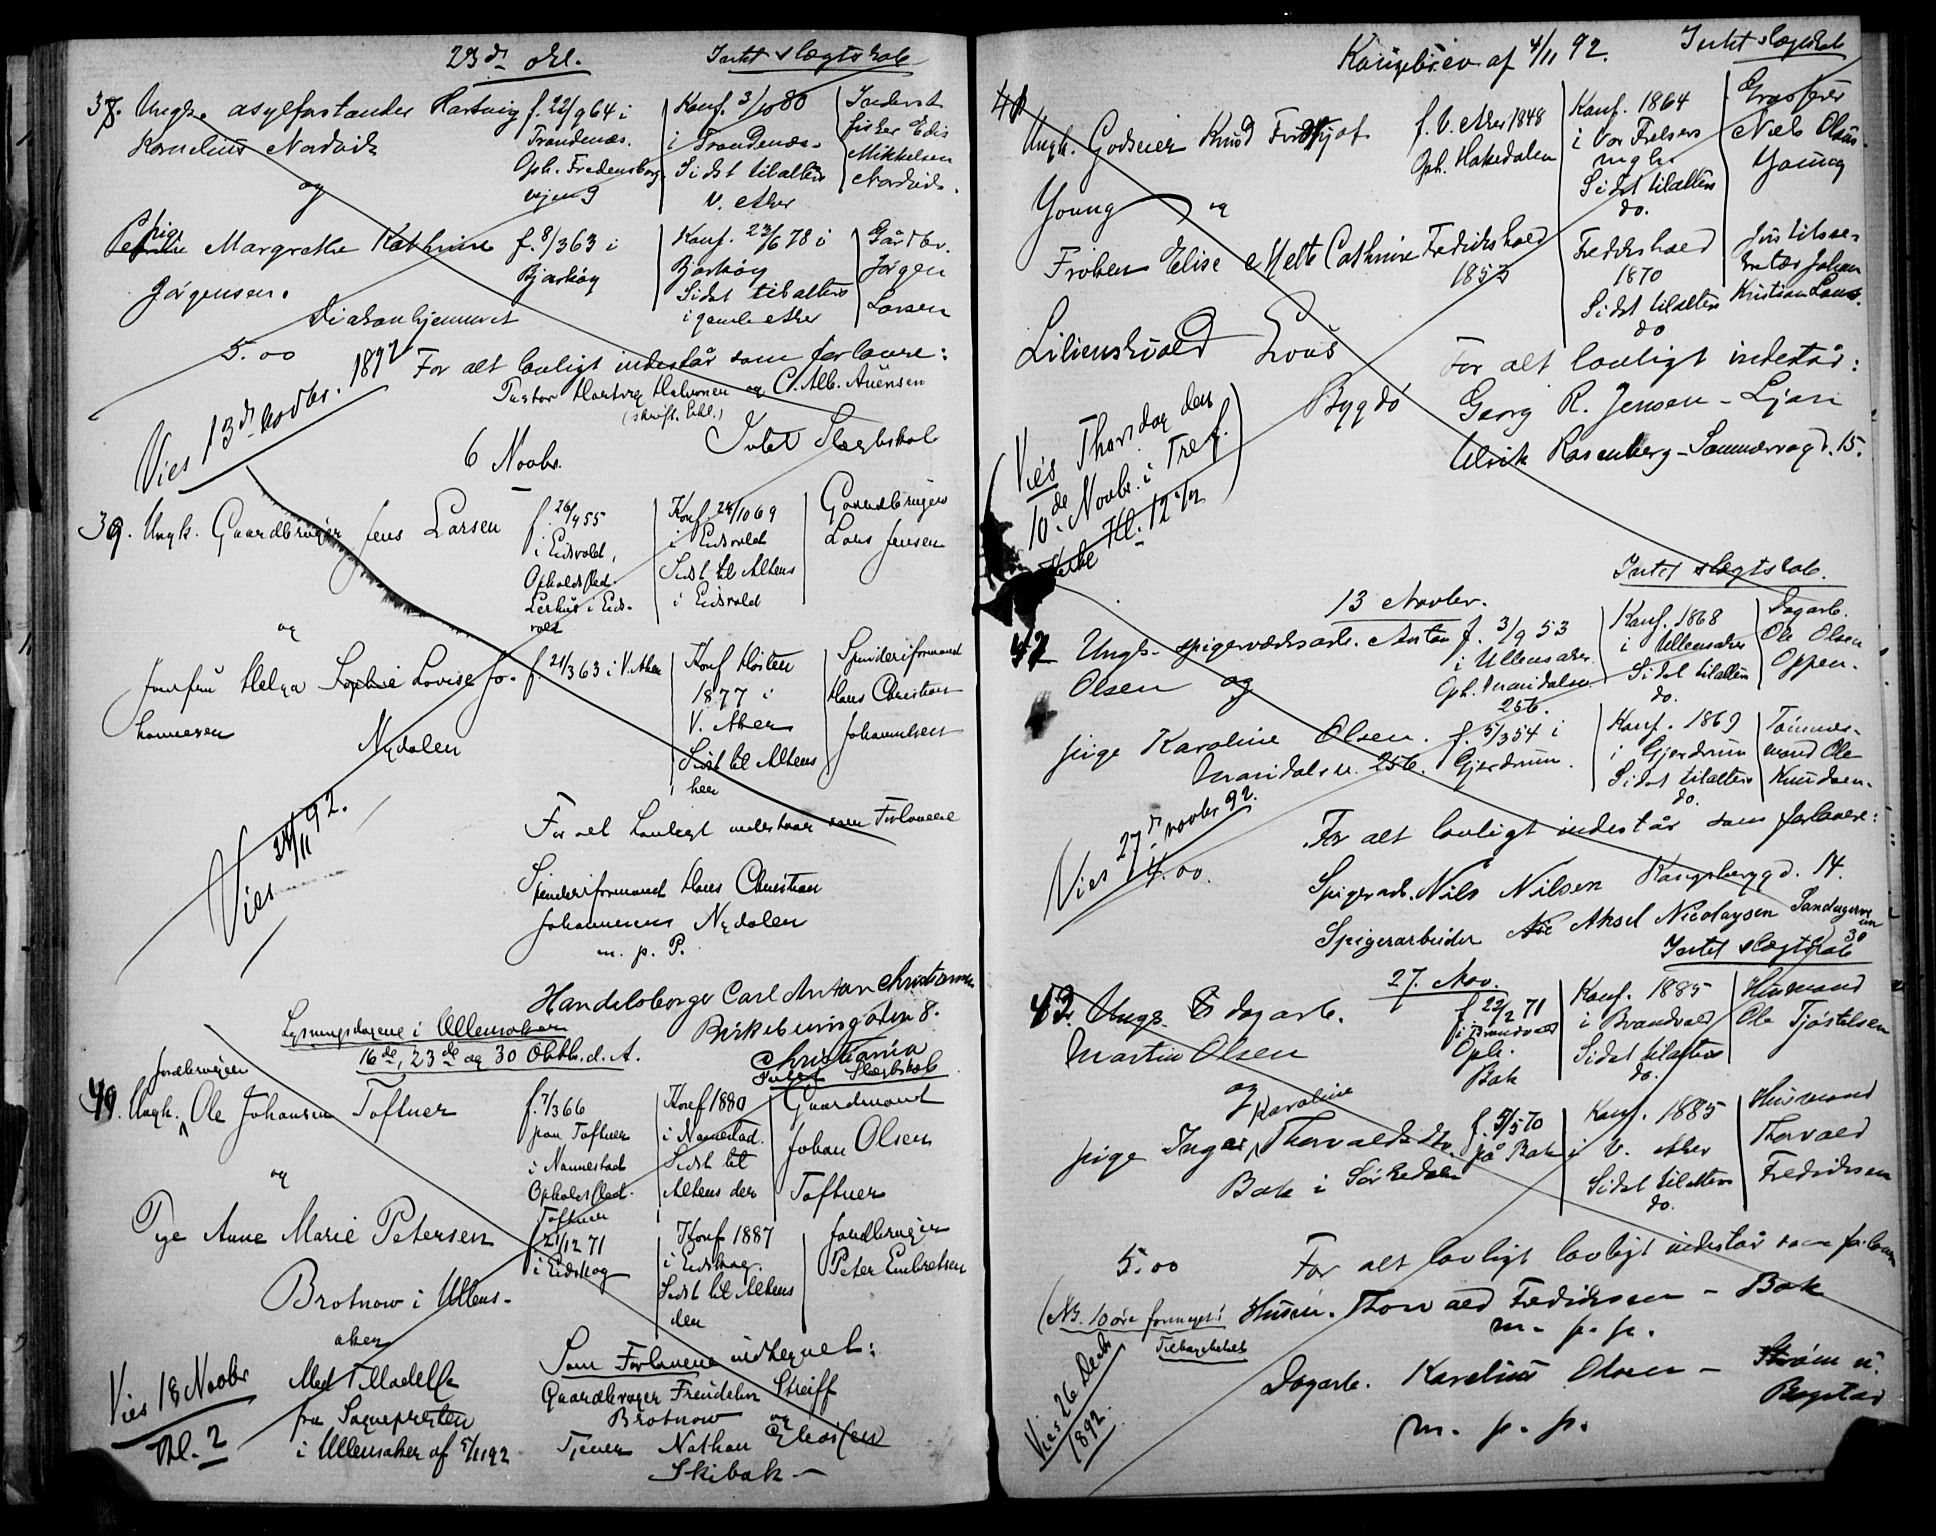 23d. okt. Intet slægtskab
38. Ungk. asylforstander Hartvig f. 22/9 64 i Konf. 3/10 80
Kornelius Nordvik Trondenæs. i Trondenæs. fisker Edis
Oph. Fredensborg Sidst til alters Mikkelsen
og vejen 9 v. Aker Nordvik.
pige Margrethe Kathrine f. 8/3 63 i Konf. 23/6 78 i Gårdbr.
Jørgensen. Bjarkøy Bjarkøy Jørgen
Sidst til alters Larsen
Diakonhjemmet i gamle Aker
5.00
For alt lovligt indestår som forlovere:
Pastor Hartvig Halvorsen og C. Alb.
Vies 13d. Novbr. 1892
6 Novbr. Intet Slægtskab
39. Ungk. Gaardbruger Jens Larsen f. 26/4 55 Konf. 24/10 69 Gaardbruger
i Eidsvold, i Eidsvold Lars Jensen
Opholdssted. Sidst til Alters
i Eids- i Eidsvold
vold
og
Jomfru Helga Sophie Lovise Jo- f. 21/3 63 i V. Aker Konf Høsten Spinderiformand
hannesen 1877 i Hans Christian
Nydalen V. Aker Johannesen
Sidst til Alters
her
For alt Lovligt indestaar som Forlovere
Vies 24/11 92.
Spinderiformand Hans Christian
Johannesen Nydalen
m. p. P.
Handelsborger Carl Anton Christiansen
Birkebeinergaden 8.
Christiania
Lysningsdagene i Ullensaker
16de, 23de og 30 Oktb. d. A.
Intet Slægtskab
Jordbruger
40. Ungk. Ole Johansen Toftner f. 7/3 66 Konf 1880 Gaardmand
paa Toftner i Nannestad. Johan Olsen
i Nannestad Sidst til Toftner
og Opholdssted. Alters der
Toftner
Pige Anne Marie Petersen f. 21/12 71 Konf 1887 Jordbruger
i Eidskog i Eidskog. Peter Embretsen
Brotnow i Ullens- Sidst til Alters
aker der
Vies 18 Novbr Med Tilladelse Som Forlovere indtegnet:
Kl. 2 fra Sognepresten Gaardbruger Frendelin Streiff
i Ullensaker af 5/11 92 Brotnow og
Tjener Nathan
Skibak —
Kongebrev af 4/11 92. Intet slægtskab
41 Ungk. Godseier Knud Fridtjof f. V. Aker 1848 Konf. 1864 Grosserer
Young og Oph. Hakedalen i Vor Frelsers Niels Olsen
mgh. Young
Sidst til alters
do.
Frøken Elise Mette Cathrine Fredrikshald Fredrikshald
1853 1870 Johan
Lilienskiold Lous Sidst til alters Kristian Lous.
do
For alt lovligt indestår:
Bygdø Georg R. Jensen - Ljan
Ulrik Rosenberg - Sommerrogd. 15.
Vies Thorsdag den
10de Novbr. i Tref.
Kl. 12 1/2
13 Novbr. Intet slægtskab.
42 Ungk. spigerværksarb. Anton f. 3/9 53 Konf. 1868 Dagarb.
Olsen og i Ullensaker i Ullensaker Ole Olsen
Oph. Maridalsv. Sidst til alters Oppen.
256. do.
pige Karoline Olsen. f. 5/3 54 i Konf. 1869 Tømmer-
Maridalsv. 256. Gjerdrum. i Gjerdrum mand Ole
Sidst til alters Knudsen.
do.
Vies 27d. novbr 92.
4.00.
For alt lovligt indestår som forlovere:
Spigerarb. Nils Nilsen Kongsberggd. 14.
Spigerarbeider Aksel Nicolaysen Sandager
30
27. Nov. Intet slægtskab
43. Ungk. dagarb. f. 22/2 71 Konf. 1885 Husmand
Martin Olsen i Brandvold i Brandvold Ole Tjøstelsen
Oph. Sidst til alters
og Bak do.
Karoline
pige Inger Thorvaldsdtr. f. 5/5 70 Konf. 1885 i Husmand
Bak i Sørkedalen på Bak V. Aker Thorvald
Sidst til alters Fredriksen
do.
5.00
For alt lovligt lovligt indestår som forlovere
(NB. 10 øre formeget) Husm. Thorvald Fredriksen - Bak
Tilbagebetalt m. p. p.
Vies 26 Decbr
1892.
Dagarb. Karelius Olsen - Strøm u.
Bogstad
m. p. p.